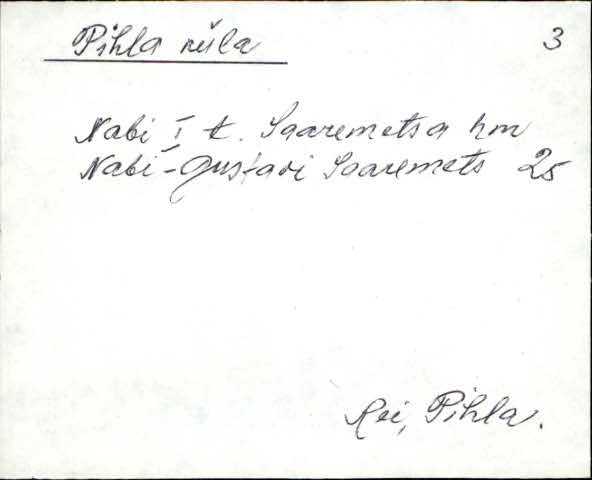 Pihlaküla 3
Nabi I t. Saaremetsa hm
Nabi-Gustavi Saaremets 25
Rei, Pihla.